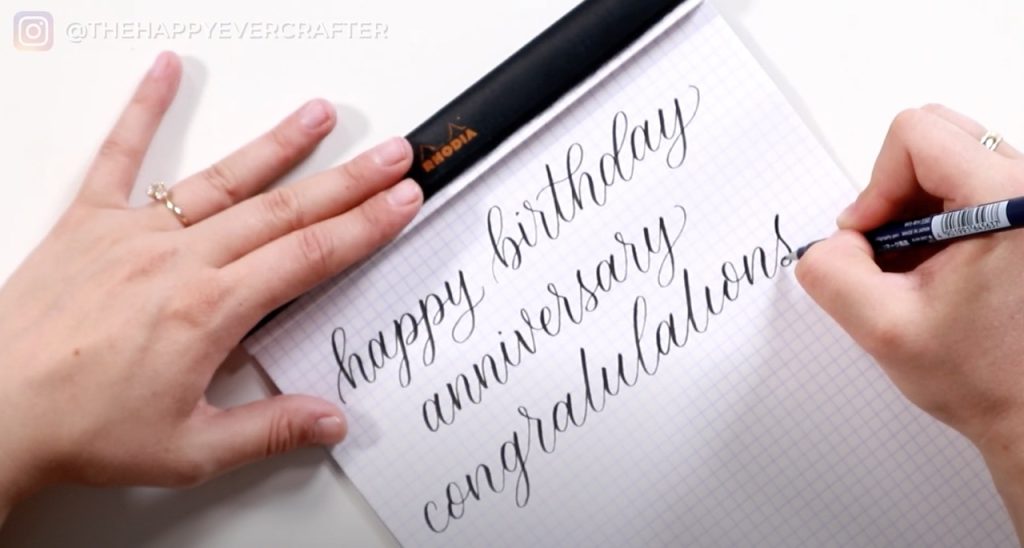 @THEHAPPYEVERCRAFTER
RHODIA
happy birthday
anniversary
congratulations